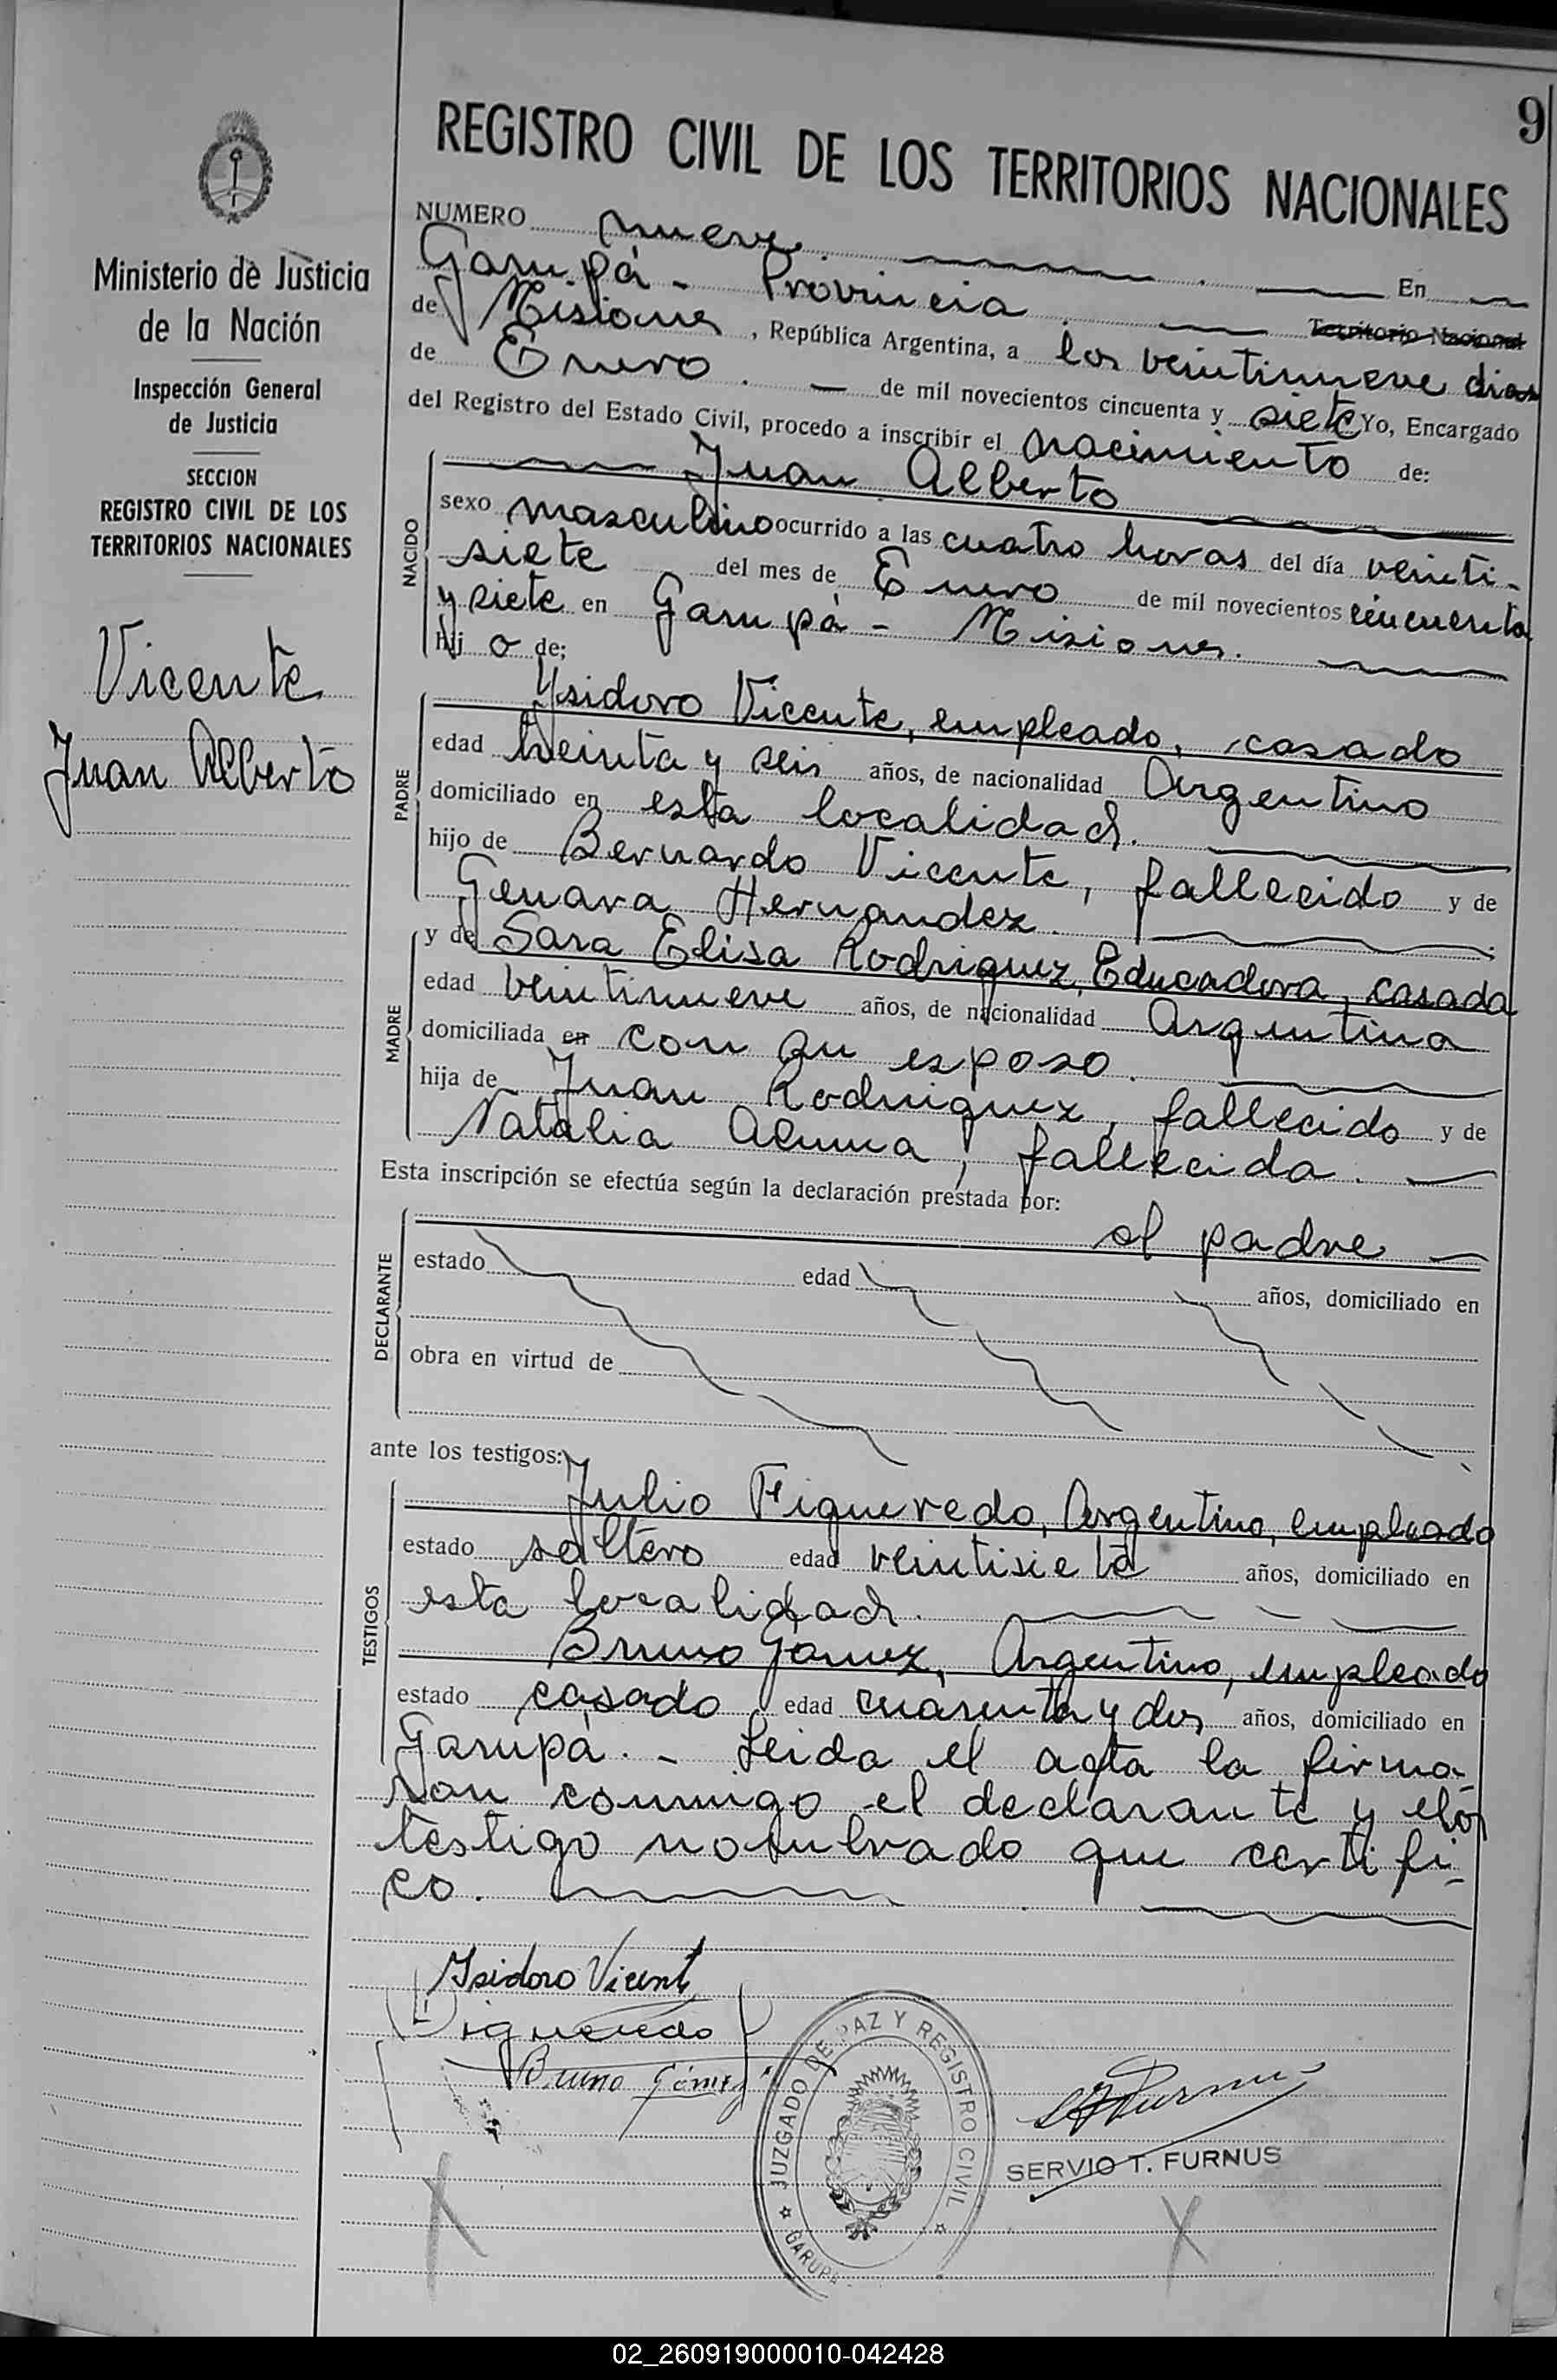 9
REGISTRO CIVIL DE LOS TERRITORIOS NACIONALES
Ministerio de Justicia
de la Nación
Inspección General
de Justicia
SECCION
REGISTRO CIVIL DE LOS
TERRITORIOS NACIONALES
Vicente
Juan Alberto
NUMERO nueve. En
Garupá - Provincia Territorio Nacional
de Misiones, República Argentina, a los veintinueve dias
de Enero. de mil novecientos cincuenta y siete Yo, Encargado
del Registro del Estado Civil, procedo a inscribir el nacimiento de:
NACIDO
Juan Alberto
sexo masculino ocurrido a las cuatro horas del día veinti-
siete del mes de Enero de mil novecientos cincuenta
y siete en Garupá - Misiones.
hij o de:
PADRE
Ysidoro Vicente, empleado, casado
edad treinta y seis años, de nacionalidad Argentino
domiciliado en esta localidad.
hijo de Bernardo Vicente, fallecido y de
Genara Hernandez.
MADRE
y de Sara Elisa Rodriguez, Educadora, casada
edad veintinueve años, de nacionalidad Argentina
domiciliada en con su esposo.
hija de Juan Rodriguez, fallecido y de
Natalia Acuna, fallecida.
Esta inscripción se efectúa según la declaración prestada por:
DECLARANTE
el padre
estado edad años, domiciliado en
obra en virtud de
ante los testigos:
TESTIGOS
Julio Figueredo, Argentino, empleado
estado soltero edad veintisiete años, domiciliado en
esta localidad.
Bruno Gomez, Argentino, empleado
estado casado edad cuarenta y dos años, domiciliado en
Garupá. - Leida el acta la firma-
ron conmigo el declarante y los
testigo nombrado que certifi-
co.
Isidoro Vicente
Figueredo
Bruno Gómez
JUZGADO DE PAZ Y REGISTRO CIVIL
GARUPA
SERVIO T. FURNUS
02_260919000010-042428